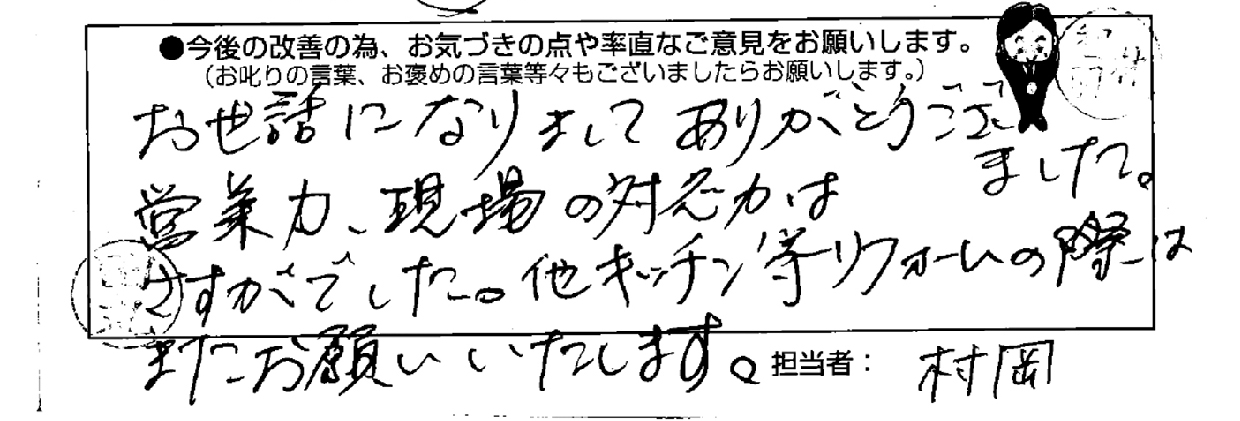 ●今後の改善の為、お気づきの点や率直なご意見をお願いします。
（お叱りの言葉、お褒めの言葉等々もございましたらお願いします。）
お世話になりまして ありがとうござい
ました。
営業力、現場の対応力は
さすがでした。他キッチン等リフォームの際は
またお願いいたします。
担当者： 村岡